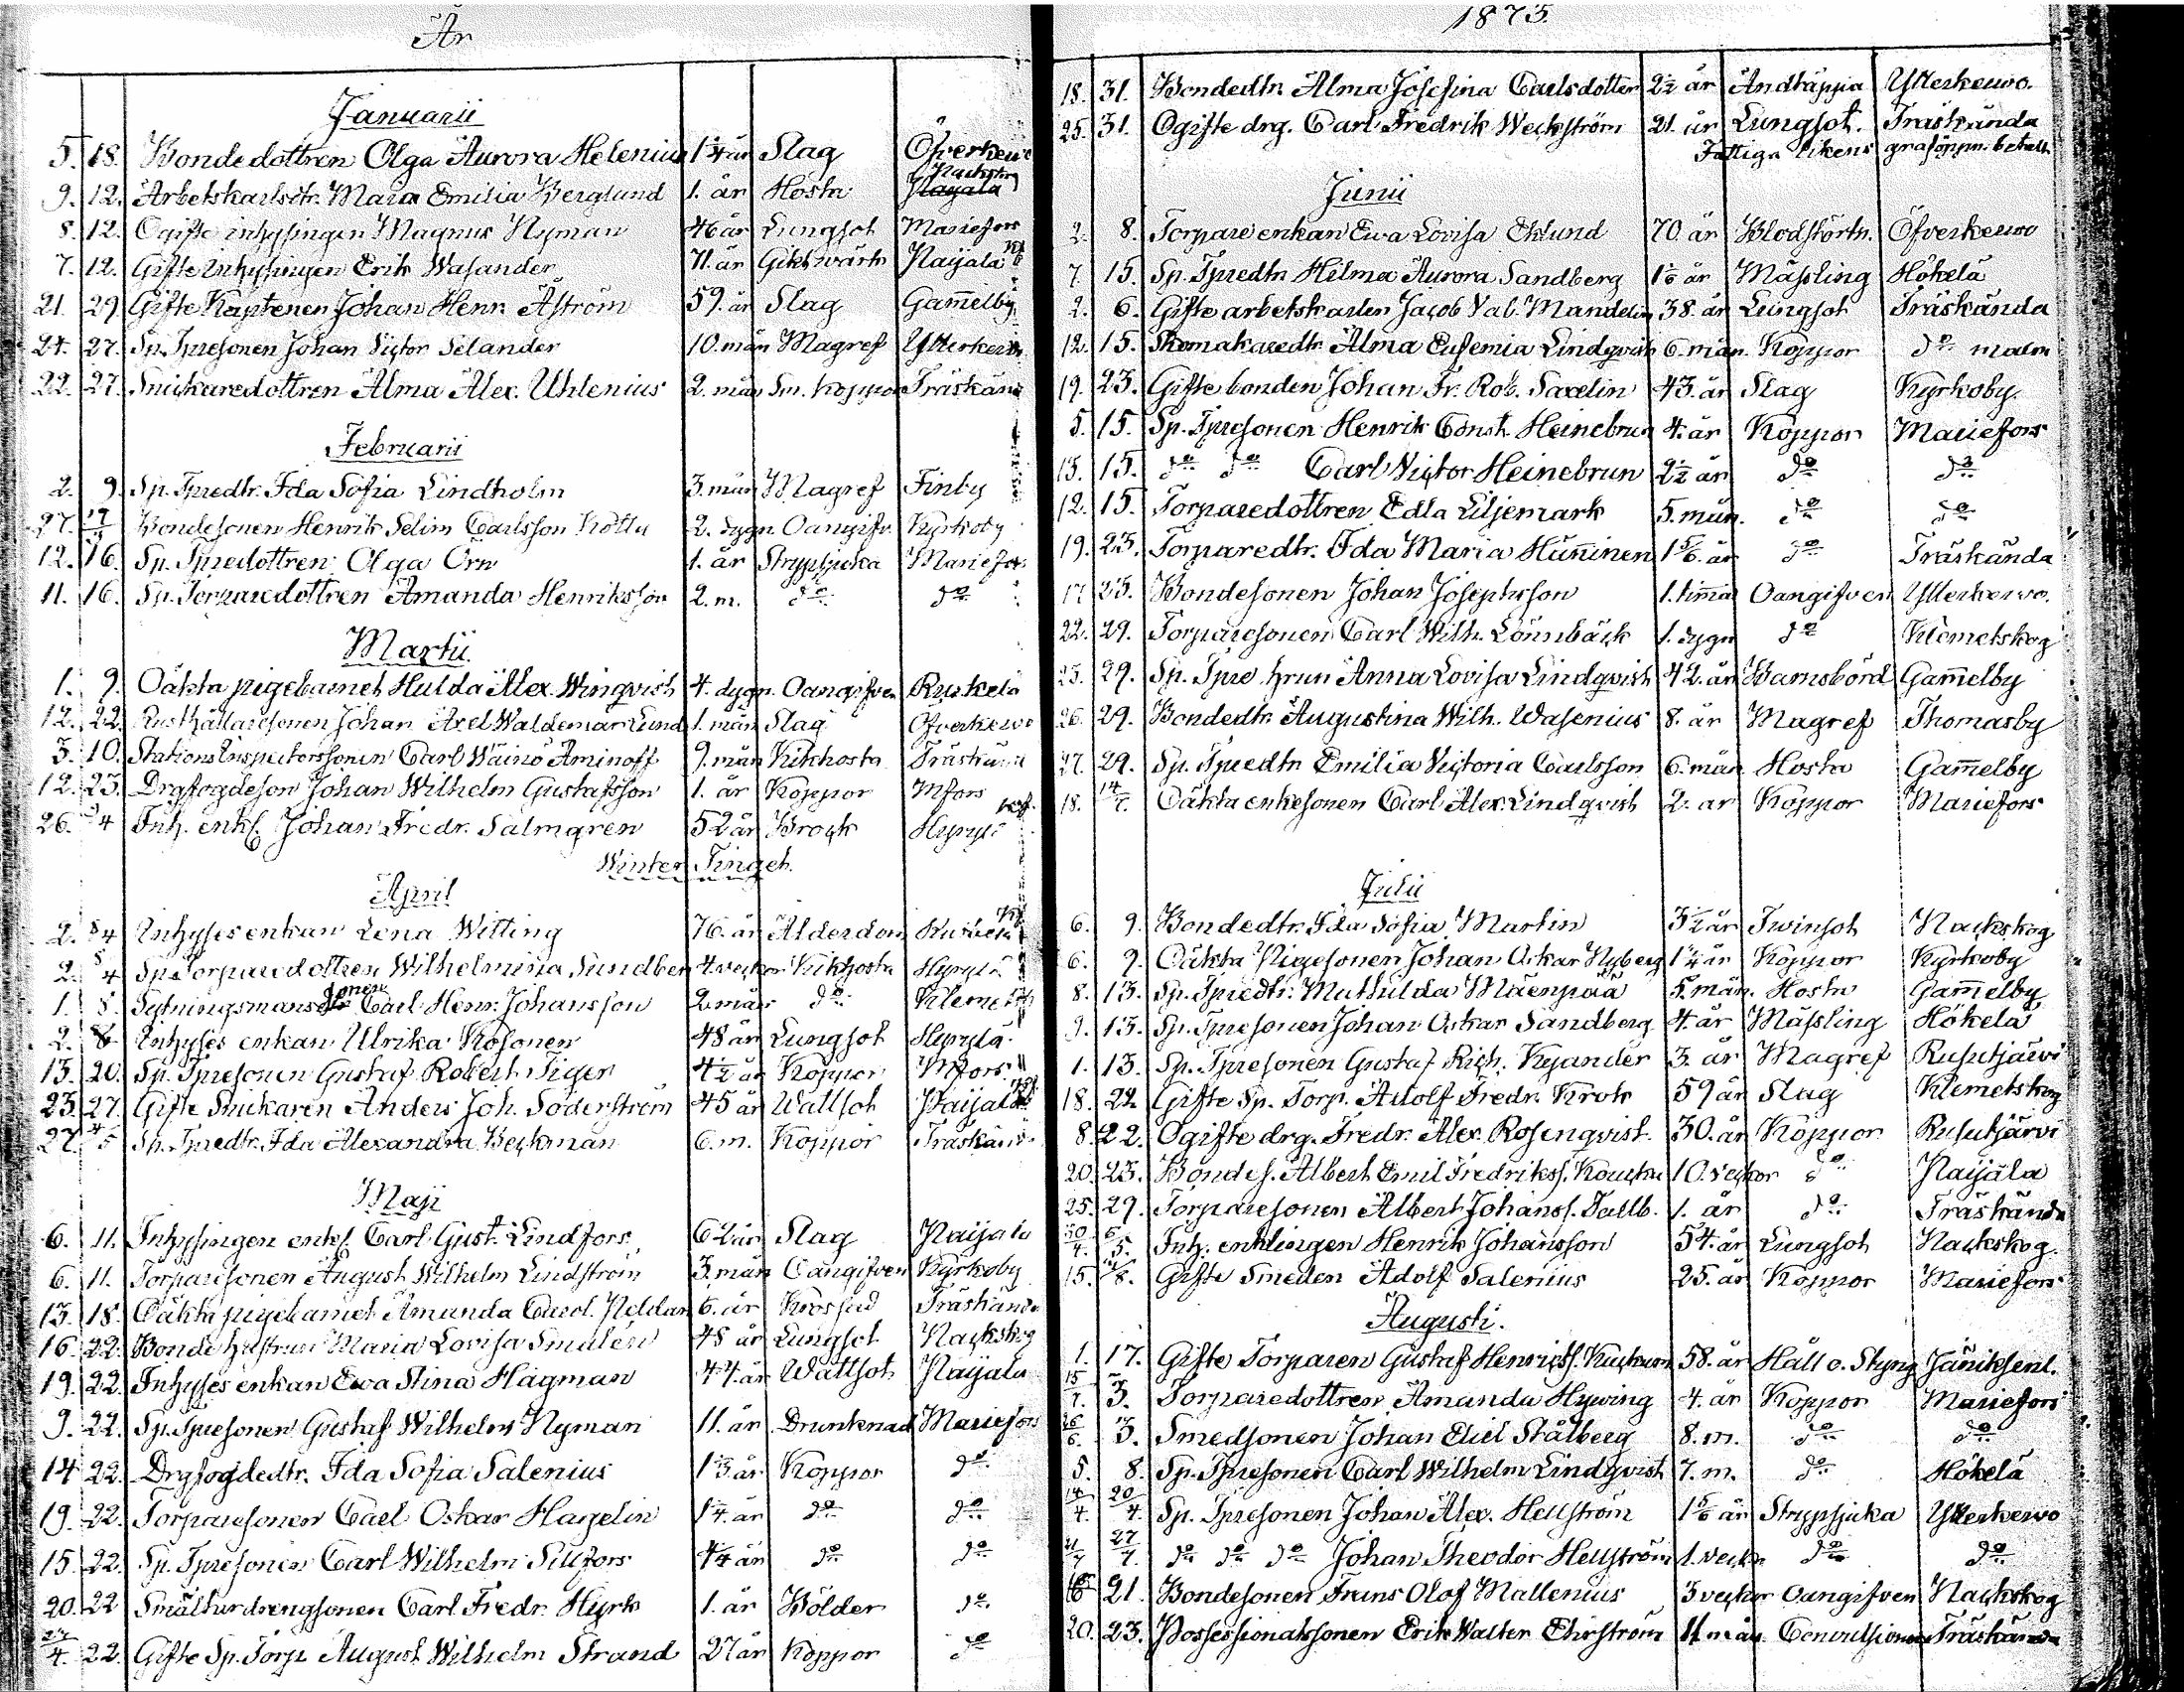 År
Januarii
5. 18. Bondedottren Olga Aurora Helenius 1 1/4 år Slag Öfverkerwo
9. 12. Arbetskarlsdtr. Maria Emilia Berglund 1. år Hosta Nackskog
8. 12. Ogifte inhysingen Magnus Nyman 46 år Lungsot Mariefors
7. 12. Gifte Inhysingen Erik Wasander 71. år Giktwärk Paijala
21. 29. Gifte Kaptenen Johan Henr. Åström 59. år Slag Gam̄elby
24. 27. Sp. Tpresonen Johan Victor Selander 10. mån Magref Ytterkerwo
22. 27. Snickaredottren Alma Alex. Uhlenius 2. mån Sm. koppor Träskända
Februarii
2. 9. Sp. Tpredtr. Ida Sofia Lindholm 3. mån Magref Finby
27. Bondesonen Henrik Selim Carlsson 2. dygn Oangifv. Kyrkoby
12. 16. Sp. Tpredottren Olga Örn 1. år Strypsjuka Mariefors
11. 16. Sp. Torparedottren Amanda Henriksson 2. m. do do
Martii.
1. 9. Oäkta pigebarnet Hulda Alex. Winqvist 4. dygn. Oangifven Ruskela
12. 22. Rusthållaresonen Johan Axel Waldemar Lund 1. mån Slag Öfverkerwo
3. 10. Stations Inspectorssonen Carl Wäinö Aminoff 9. mån Kikhosta Träskända
12. 23. Drgfogdeson Johan Wilhelm Gustafsson 1. år Koppor Mfors
26. 5/4 Inh. enkl. Johan Fredr. Salmgren 52 år Brock Hyrylä
Winter Tinget.
April
2. 5/4 Inhyses enkan Lena Witting 76. år Ålderdom
2. 5/4 Sp. Torparedottren Wilhelmina Sundberg 4. veckor Kikhosta Hyrylä
1. 8. Sytningsmanssonen Carl Henr. Johansson 2. mån do
2. Inhyses enkan Ulrika Kosonen 48 år Lungsot Hyrylä
13. 20. Sp. Tpresonen Gustaf Robert Tiger 4 1/2 år Koppor Mfors.
23. 27. Gifte Snickaren Anders Joh. Söderström 45 år Wattsot Paijala
27. 4/5 Sp. Tpredtr. Ida Alexandra Beckman 6. m. Koppor Träskända
Maji
6. 11. Inhysingen enkl. Carl Gust. Lindfors 62 år Slag Paijala
6. 11. Torparesonen August Wilhelm Lindström 3. mån Oangifven Kyrkoby
13. 18. Oäkta pigebarnet Amanda Carol. 6. år Träskända
16. 22. Bonde hustrun Maria Lovisa Smalén 48 år Lungsot Nackskog
19. 22. Inhyses enkan Ewa Stina Hagman 44. år Wattsot Paijala
9. 22. Sp. Tpresonen Gustaf Wilhelm Nyman 11. år Drunknad Mariefors
14 22. Drgfogdedtr. Ida Sofia Salenius 1 1/3 år Koppor do
19. 22. Torparesonen Carl Oskar Hagelin 1 1/4. år do do
15. 22. Sp. Tpresonen Carl Wilhelm Sillfors år do do
20. 22 Smälturdrengsonen Carl Fredr. Hyrk 1. år Bölder do
27/4. 22. Gifte Sp. Torp. August Wilhelm Strand 27 år Koppor do
1873.
18. 31. Bondedtr. Alma Josefina Carlsdotter 2 1/2 år Andtäppa Ytterkerwo.
25. 31. Ogifte drg. Carl Fredrik Weckström 21. år Lungsot. Träskända
Fattiga likens graföppn. betalt.
Junii
2. 8. Torpare enkan Ewa Lovisa Eklund 70. år Blodstörtn. Öfverkerwo
7. 15. Sp. Tpredtr. Hilma Aurora Sandberg 1 1/6 år Mässling Hökelä
2. 6. Gifte arbetskarlen Jacob Vab. Mandelin 38. år Lungsot Träskända
12. 15. Skomakaredtr. Alma Eufemia Lindqvist 6. mån. Koppor do malm
19. 23. Gifte bonden Johan Fr. Rob. Saxelin 43. år Slag Kyrkoby.
5. 15. Sp. Tpresonen Henrik Const. Heinebrun 4. år Koppor Mariefors
13. 15. do do Carl Victor Heinebrun 2 1/2 år do do
12. 15. Torparedottren Edla Liljemark 5. mån. do do
19. 23. Torparedtr. Ida Maria Hun̄inen 1 5/6. år do Träskända
17 23. Bondesonen Johan Josephsson 1. tim̄a Oangifven Ytterkerwo.
22. 29. Torparesonen Carl Wilh. Lönnbäck 1. dygn do Klemetskog
23. 29. Sp. Tpre hrun Anna Lovisa Lindqvist 42. år Barnsbörd Gam̄elby
26. 29. Bondedtr. Augustina Wilh. Wasenius 8. år Magref Thomasby
27. 29. Sp. Tpredtr Emilia Victoria Carlsson 6. mån Hosta Gam̄elby
18. 14/7. Oäkta enkesonen Carl Alex. Lindqvist 2. år Koppor Mariefors
Julii
6. 9. Bondedtr. Ida Sofia Martin 3 1/2 år Twinsot Nackskog
6. 9. Oäkta Pigesonen Johan Oskar Nyberg 1 1/4 år Koppor Kyrkoby
8. 13. Sp. Tpredtr. Mathilda Mäenpää 5. mån. Hosta Gam̄elby
9. 13. Sp. Tpresonen Johan Oskar Sandberg 4. år Mässling Hökelä
1. 13. Sp. Tpresonen Gustaf Rich. Kyander 3. år Magref Rusutjärvi
18. 22 Gifte Sp. Torp. Adolf Fredr. Krok 59 år Slag Klemetskog
8. 22. Ogifte drg. Fredr. Alex. Rosenqvist. 30. år Koppor Rusutjärvi
20. 23. Bondes. Albert Emil Fredrikss. 10. veckor do Paijala
25. 29. Torparesonen Albert Johanss. Tallb. 1. år do Träskända
30/4. 5. Inh. enklingen Henrik Johansson 54. år Lungsot Nackskog.
15. /8. Gifte Smeden Adolf Salenius 25. år Koppor Mariefors
Augusti.
1. 17. Gifte Torparen Gustaf Henricss. 58. år Håll o. Styng Jäniksenl.
15/7. 3. Torparedottren Amanda Hywing 4. år Koppor Mariefors
26/6. 3. Smedsonen Johan Eliel Stålberg 8. m. do do
5. 8. Sp. Tpresonen Carl Wilhelm Lindqvist 7. m. do Hökelä
14/4. 20/4. Sp. Tpresonen Johan Alex. Hellström 1 5/6 år Strypsjuka Ytterkerwo
21/7 27/7. do do do Johan Theodor Hellström 1. vecka do do
21. Bondesonen Frans Olof Mallenius 3 veckor Oangifven Nackskog
20. 23. Possessionatssonen Erik Walter Ehrström 11 mån Convulsioner Träskända